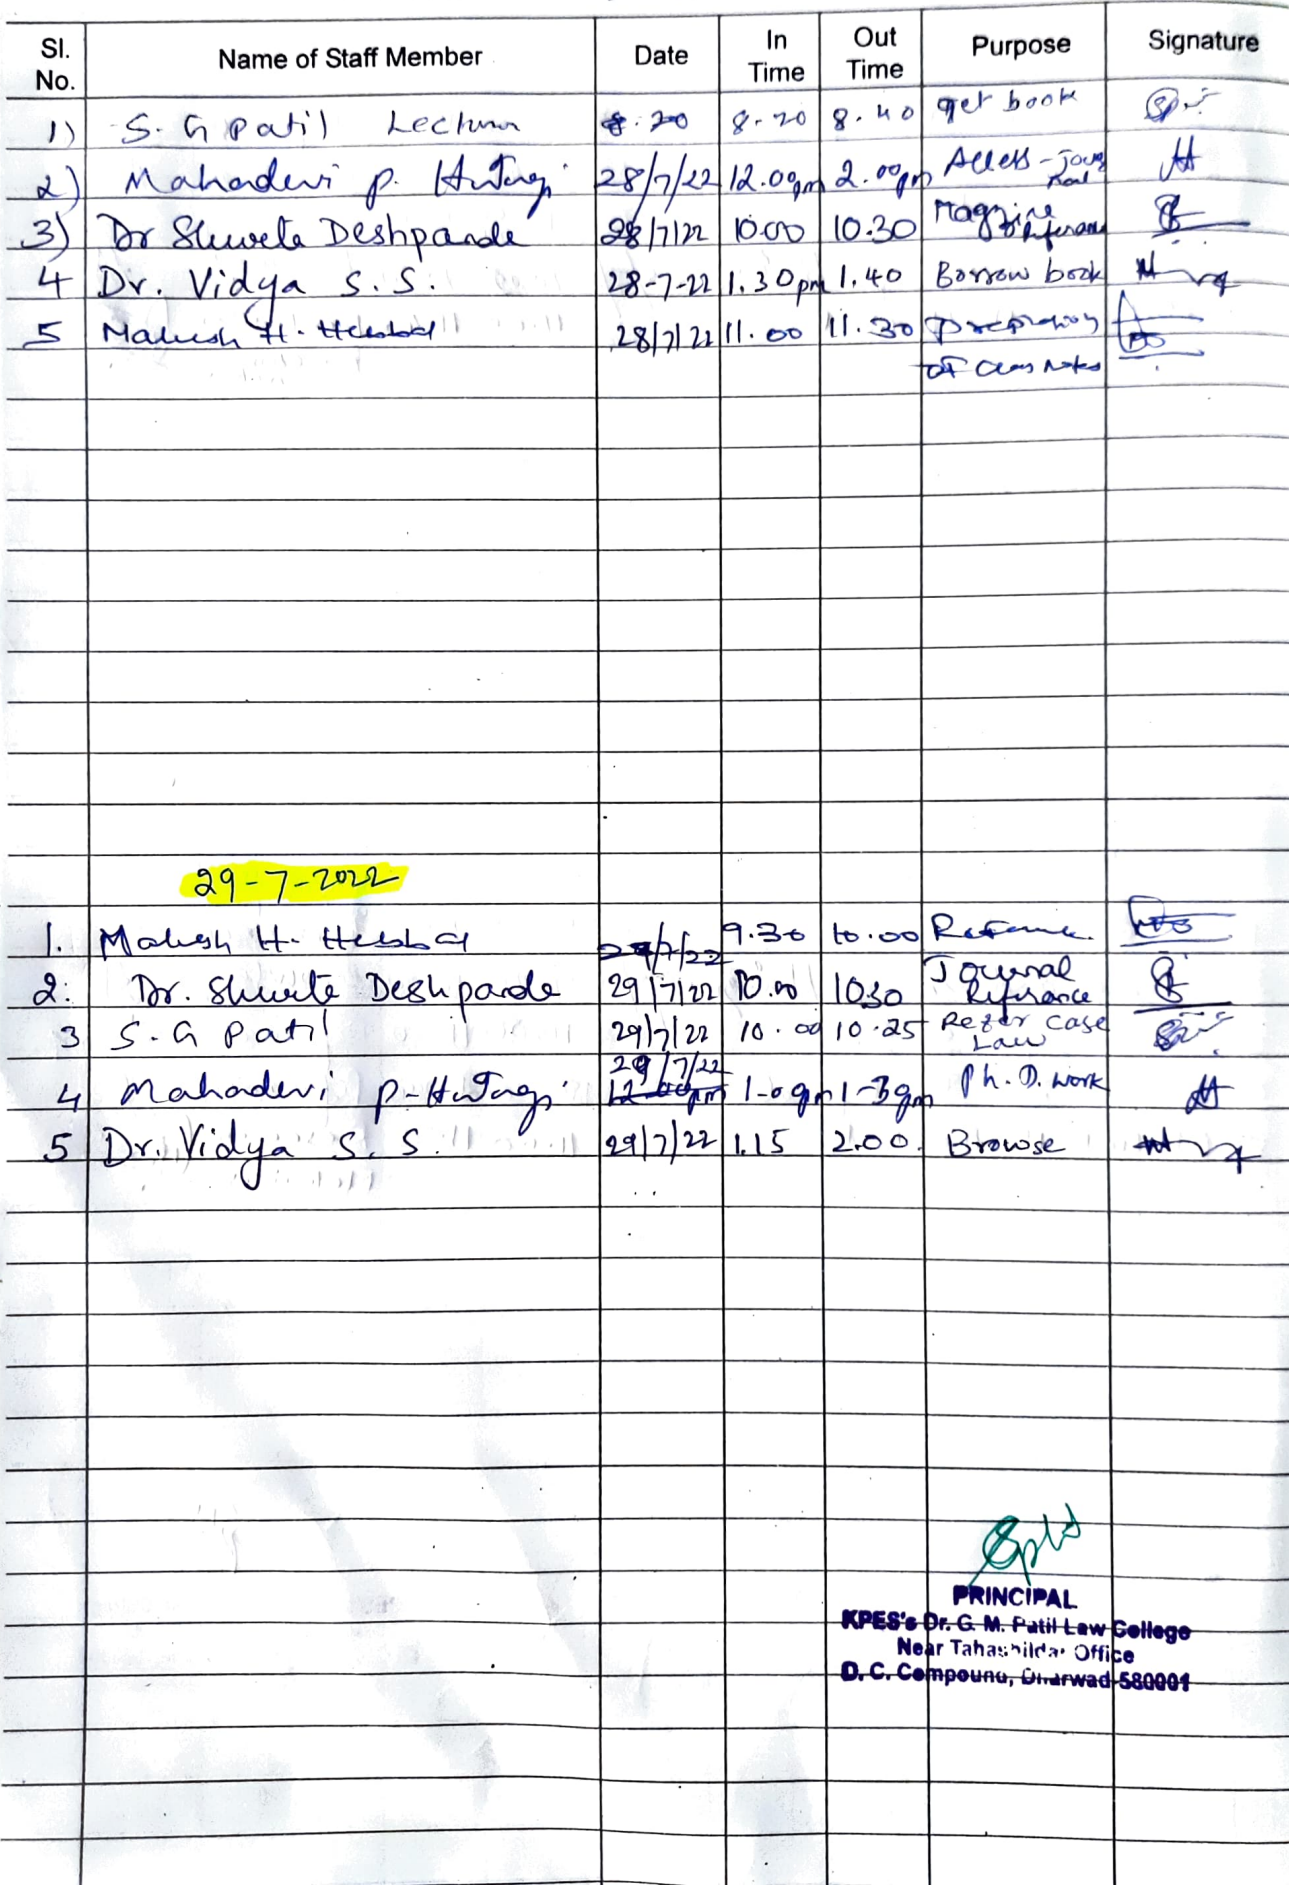 Sl. No. Name of Staff Member Date In Time Out Time Purpose Signature
1) S. G Patil Lecturer 8.20 8.20 8.40 get book
2) Mahadevi P. 28/7/22 12.00pm 2.00pm Access - Journal
3) Dr Shweta Deshpande 28/7/22 10.00 10.30 Magzine Referance
4 Dr. Vidya S. S. 28-7-22 1.30pm 1.40 Borrow book
5 Mahesh H. 28/7/22 11.00 11.30
of Class Notes
29-7-2022
1. Mahesh H. 29/7/22 9.30 10.00
2. Dr. Shweta Deshpande 29/7/22 10.00 1030 Journal Referance
3 S. G Patil 29/7/22 10.00 10.25 Refer Case Law
4 Mahadevi P. 29/7/22 Ph. D. work
5 Dr. Vidya S. S. 29/7/22 1.15 2.00. Browse
PRINCIPAL
KPES's Dr. G. M. Patil Law College
Near Tahashildar Office
D. C. Compound, Dharwad-580001